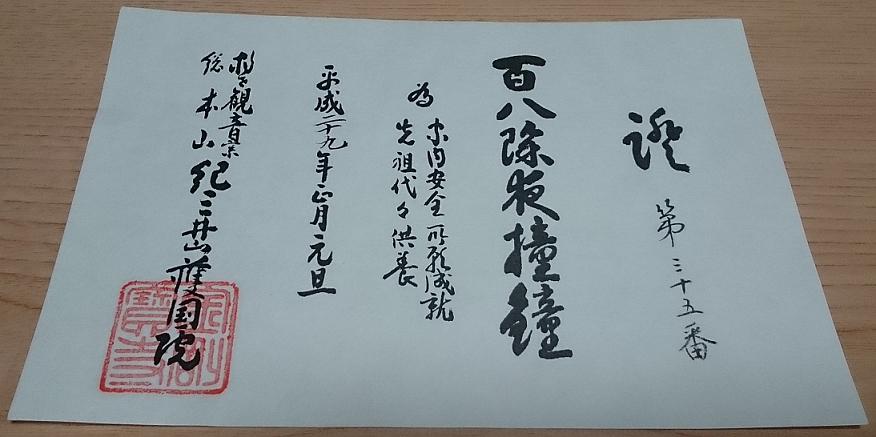 證
第三十五番
百八除夜撞鐘
為
家内安全 所願成就
先祖代々供養
平成二十九年正月元旦
救世観音宗
総本山紀三井山護国院